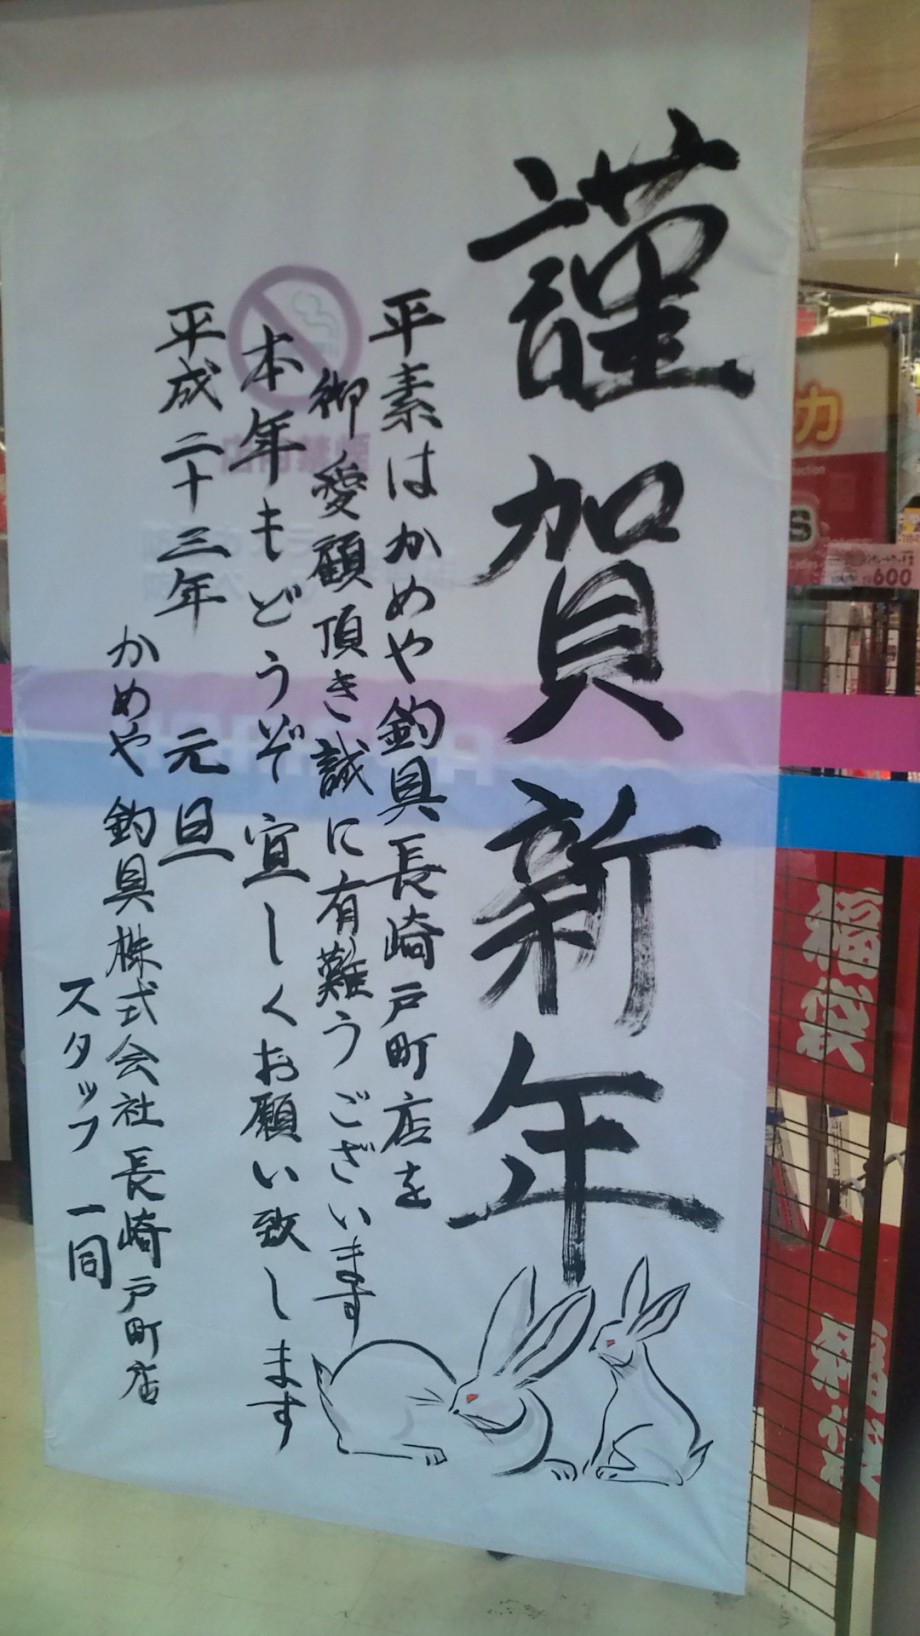 謹賀新年
平素はかめや釣具長崎戸町店を
御愛顧頂き誠に有難うございます
本年もどうぞ宜しくお願い致します
平成二十三年 元旦
かめや釣具株式会社 長崎戸町店
スタッフ 一同
力
600
福袋
福袋